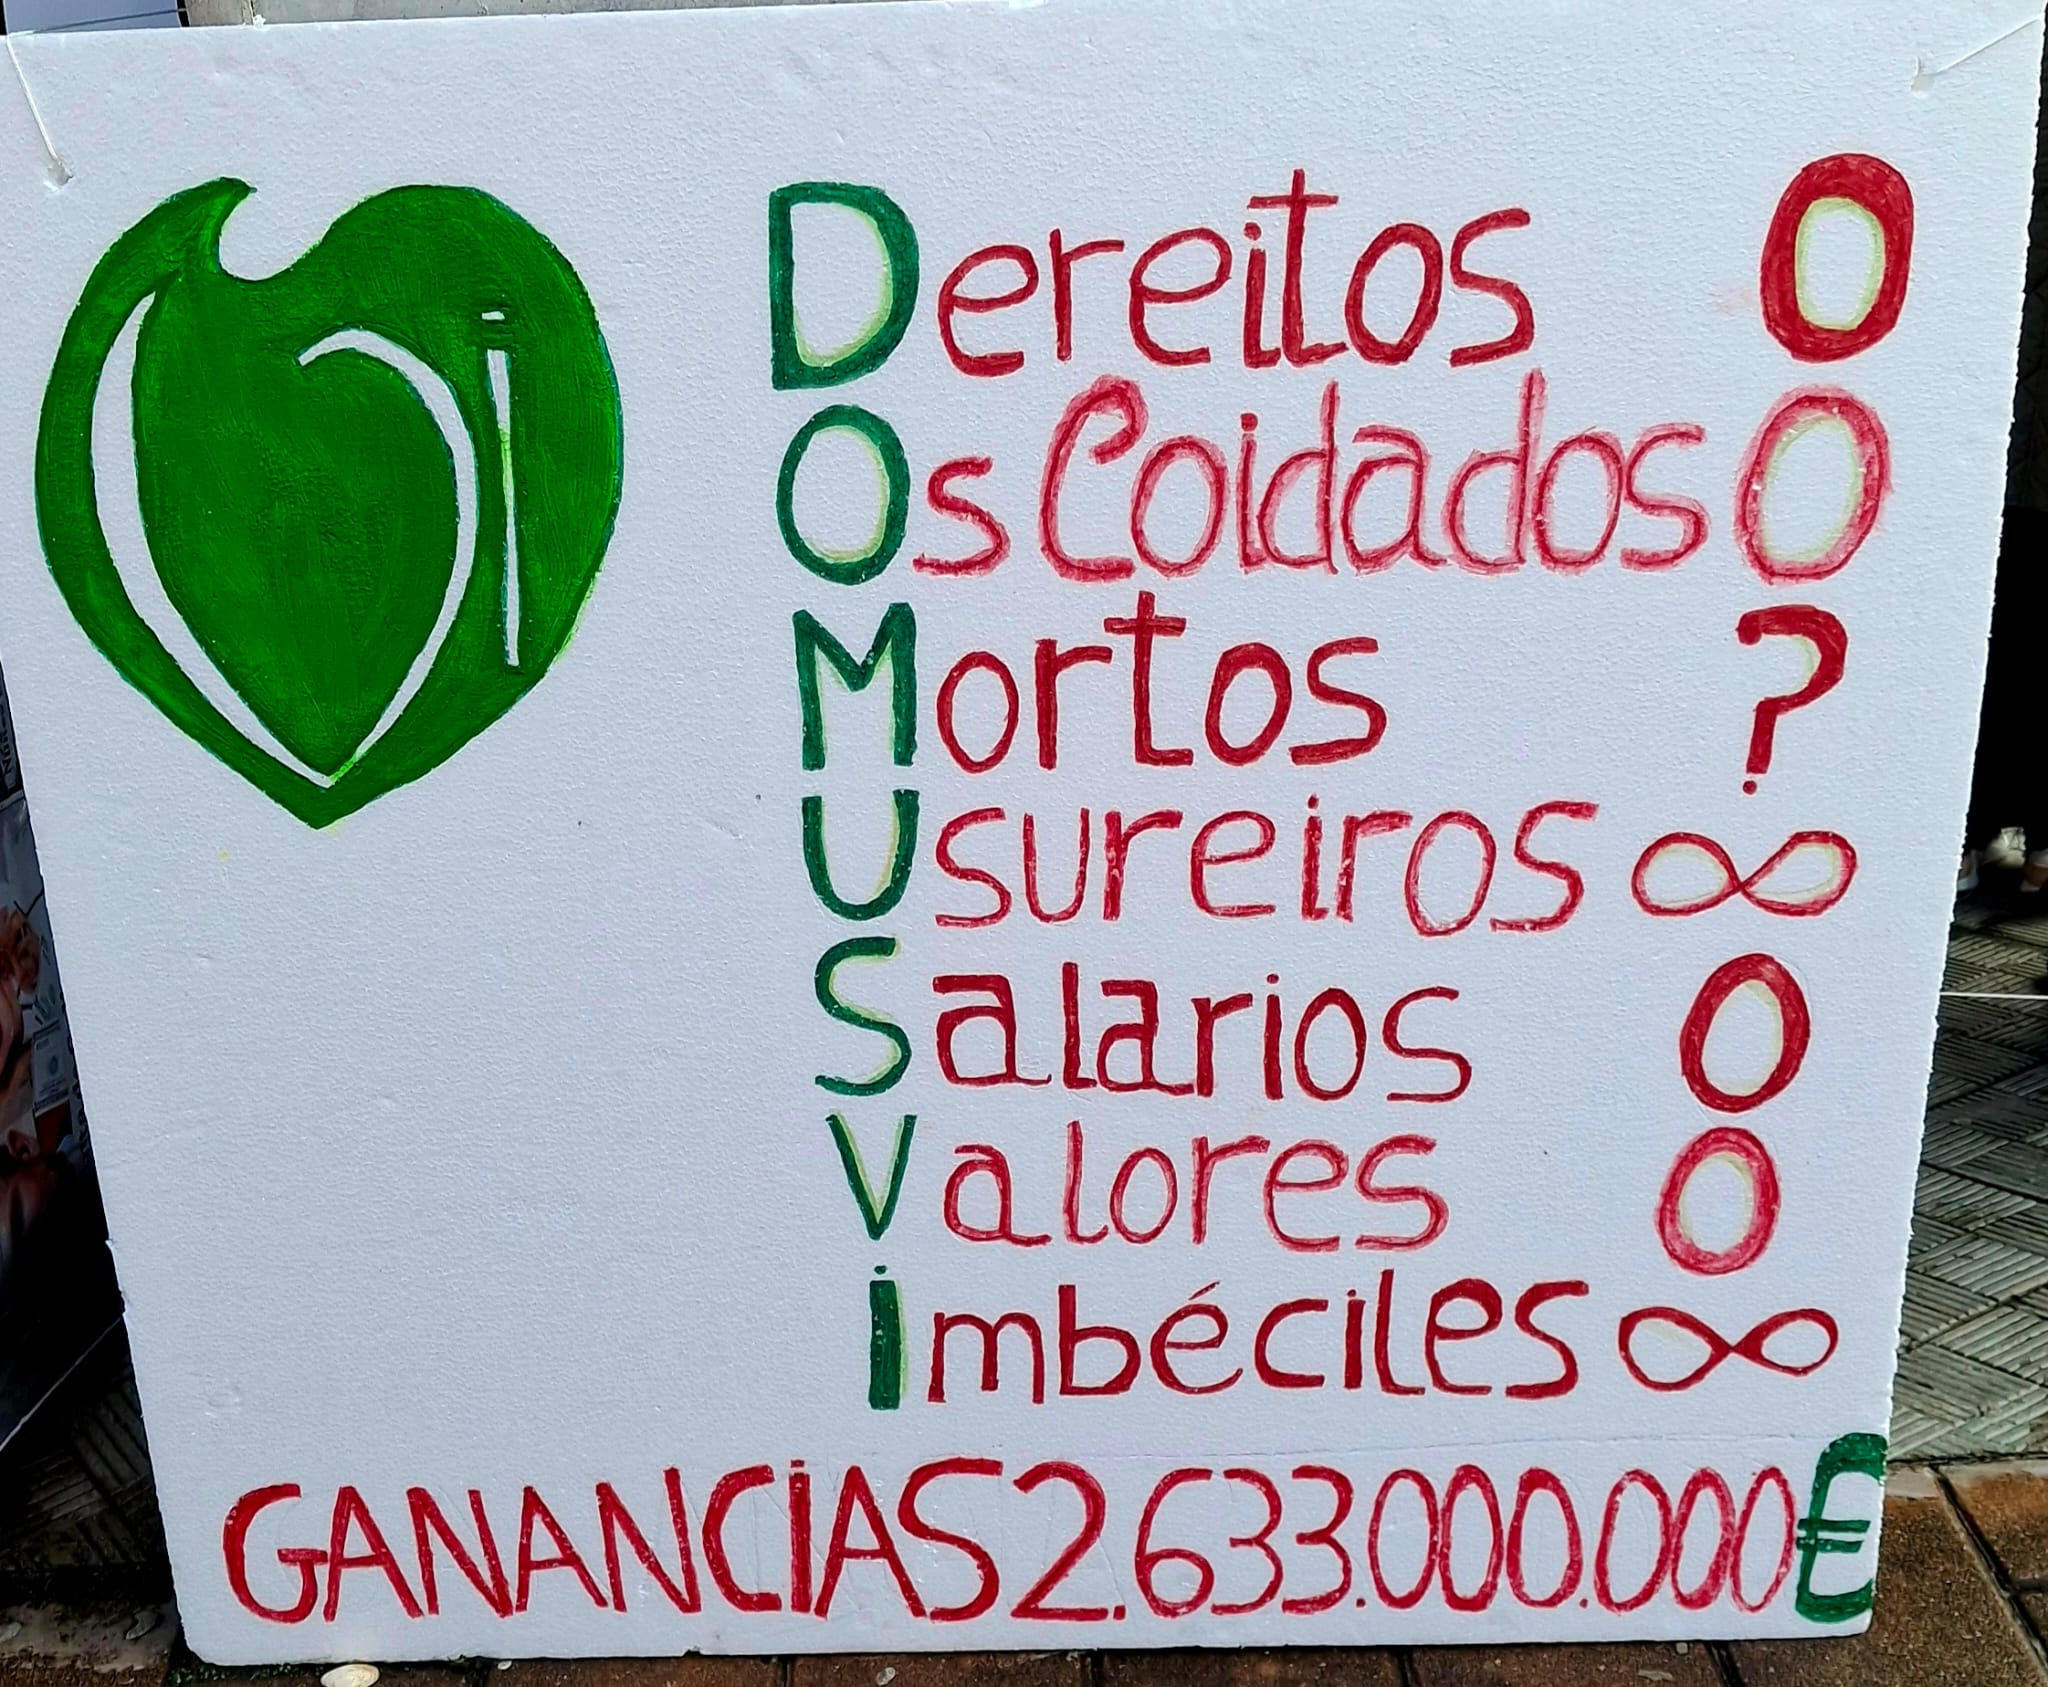 Dereitos 0
Os Coidados 0
Mortos ?
Usureiros ∞
Salarios 0
Valores 0
imbéciles ∞
GANANCiAS 2.633.000.000€